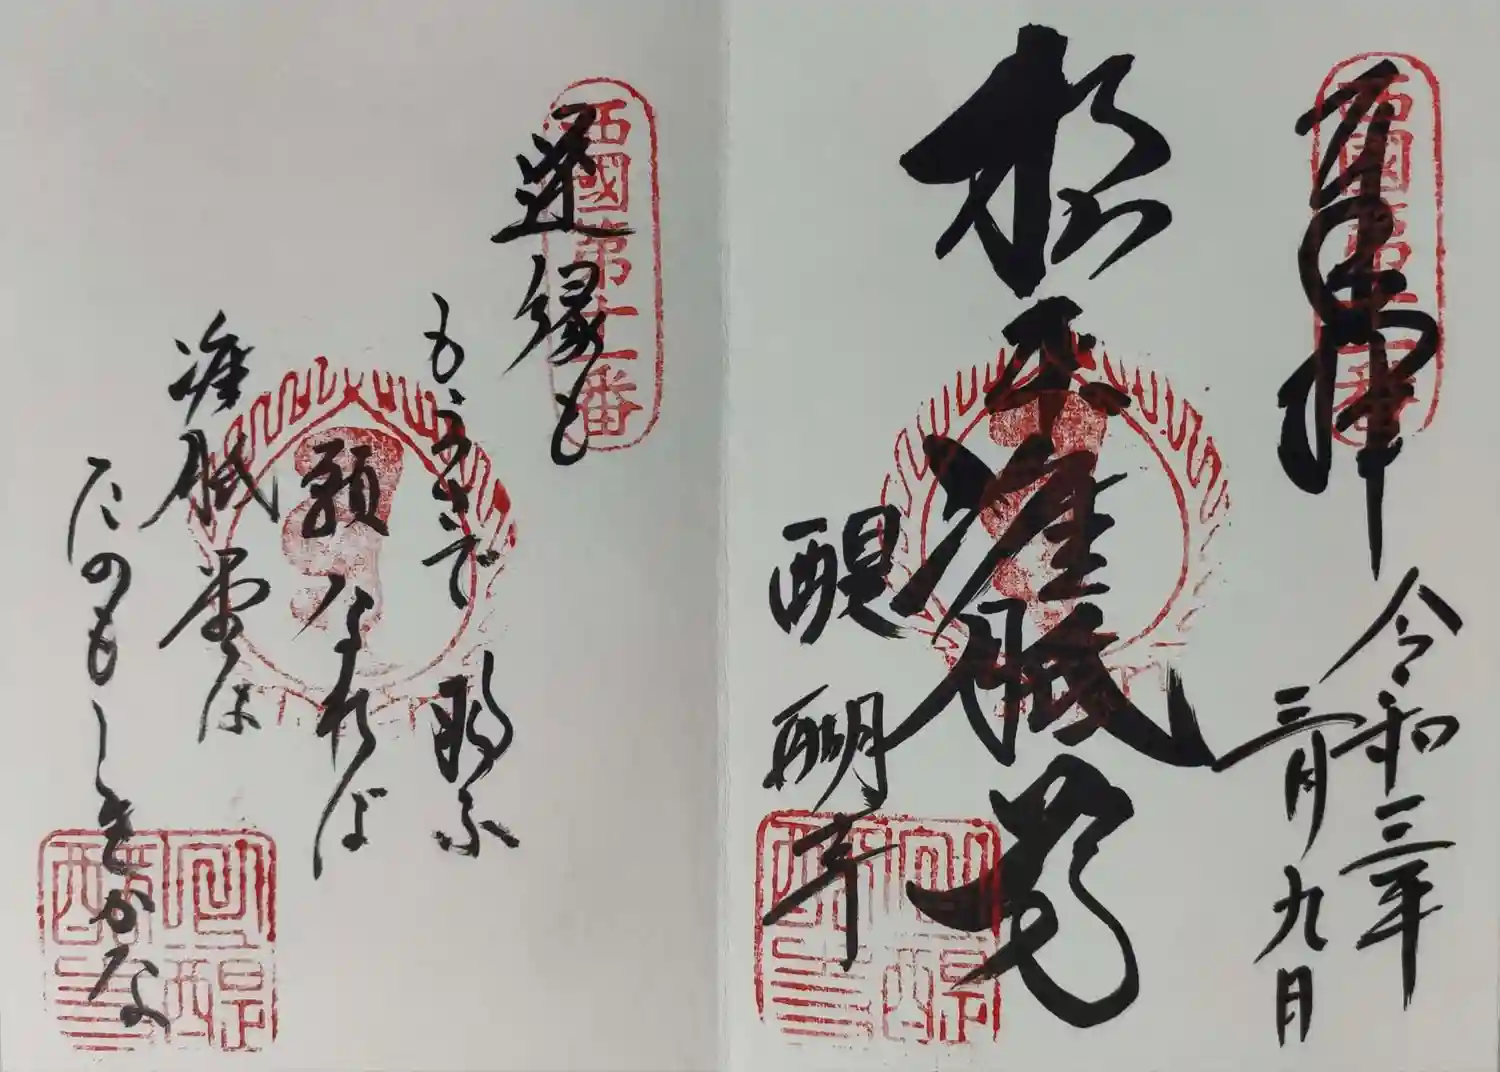 奉拝
西國第十一番
令和三年
三月九日
根本准胝尊
醍醐寺
西國第十一番
逆縁も
もらさで 救ふ
願なれば
准胝堂は
たのもしきかな